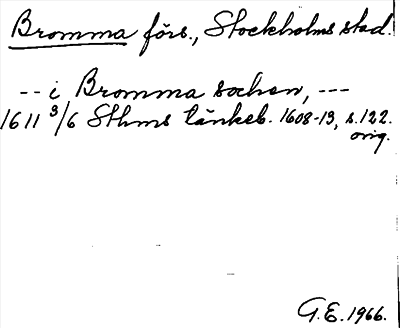 Bromma förs., Stockholms stad.
-- i Bromma sochen, ---
1611 3/6 Sthms tänkeb. 1608-13, s. 122.
orig.
G.E. 1966.